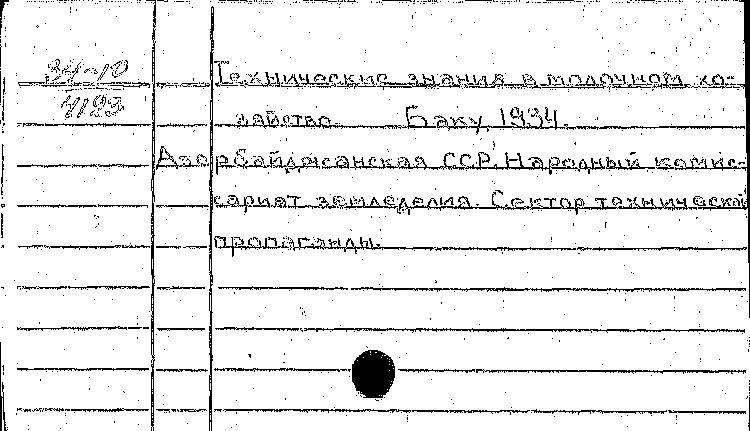 34-10
4123
Технические знания в молочном хо-
зяйстве. Баку, 1934.
Азербайджанская ССР. Народный комис-
сариат земледелия. Сектор технической
пропаганды.